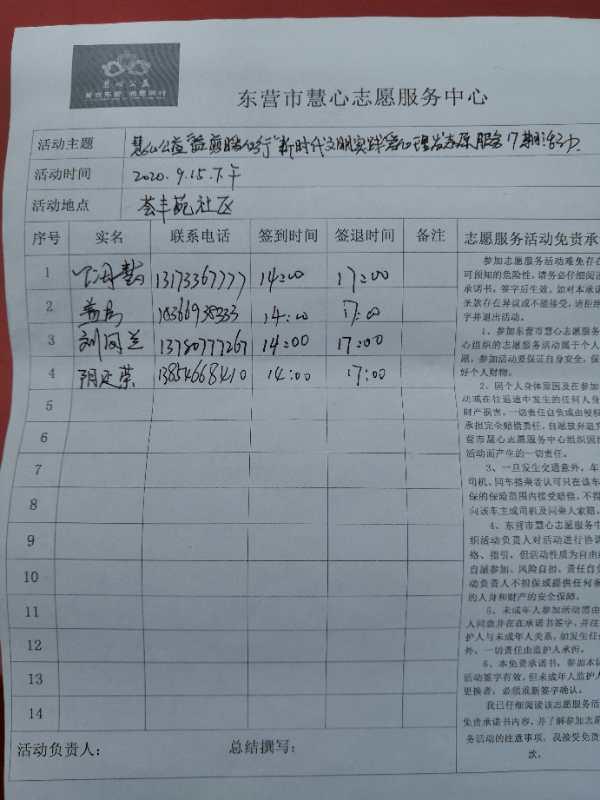 慧心公益
东营市慧心志愿服务中心
活动主题 慧心公益"益剪暖心行"新时代文明实践爱心理发志愿服务17期活动
活动时间 2020.9.15.下午
活动地点 荟丰苑社区
序号 实名 联系电话 签到时间 签退时间 备注 志愿服务活动免责承
1 13173367777 14:00 17:00
2 14:00 17:00
3 刘同兰 13780777267 14:00 17:00
4 13854668410 14:00 17:00
5
6
7
8
9
10
11
12
13
14
参加志愿服务活动难免存在
可预知的危险性,请务必仔细阅读
承诺书。签字后生效。如对本承诺
条款存在异议或不能接受,请拒绝
字并退出活动。
1、参加东营市慧心志愿服务中
心组织的志愿服务活动属于个人
愿,参加活动要保证自身安全,保
好个人财物。
2、因个人身体原因及在参加
动或在往返途中发生的任何人身
财产损害,一切责任自负或由侵权
承担完全赔偿责任,自愿放弃追究
营市慧心志愿服务中心组织因
活动而产生的一切责任。
3、一旦发生交通意外,车
司机、同车搭乘者认可只在该车
保的保险范围内接受赔偿,不得
向该车主或司机及同乘人索赔。
4、东营市慧心志愿服务中
织活动负责人对活动进行协调
络、指引,但活动性质为自由
自愿参加、风险自担、责任自负
动负责人不担保或提供任何
的人身和财产的安全保障。
5、未成年人参加活动需由
人同意并在在承诺书签字,并注
护人与未成年人关系,如发生任
外,一切责任由监护人承担。
6、本免责承诺书,参加本
活动签字有效,但未成年人监护人
更换者,必须重新签字确认。
我已仔细阅读该志愿服务活
免责承诺书内容,并了解参加志愿
务活动的注意事项,我接受免责
款。
活动负责人: 总结撰写: